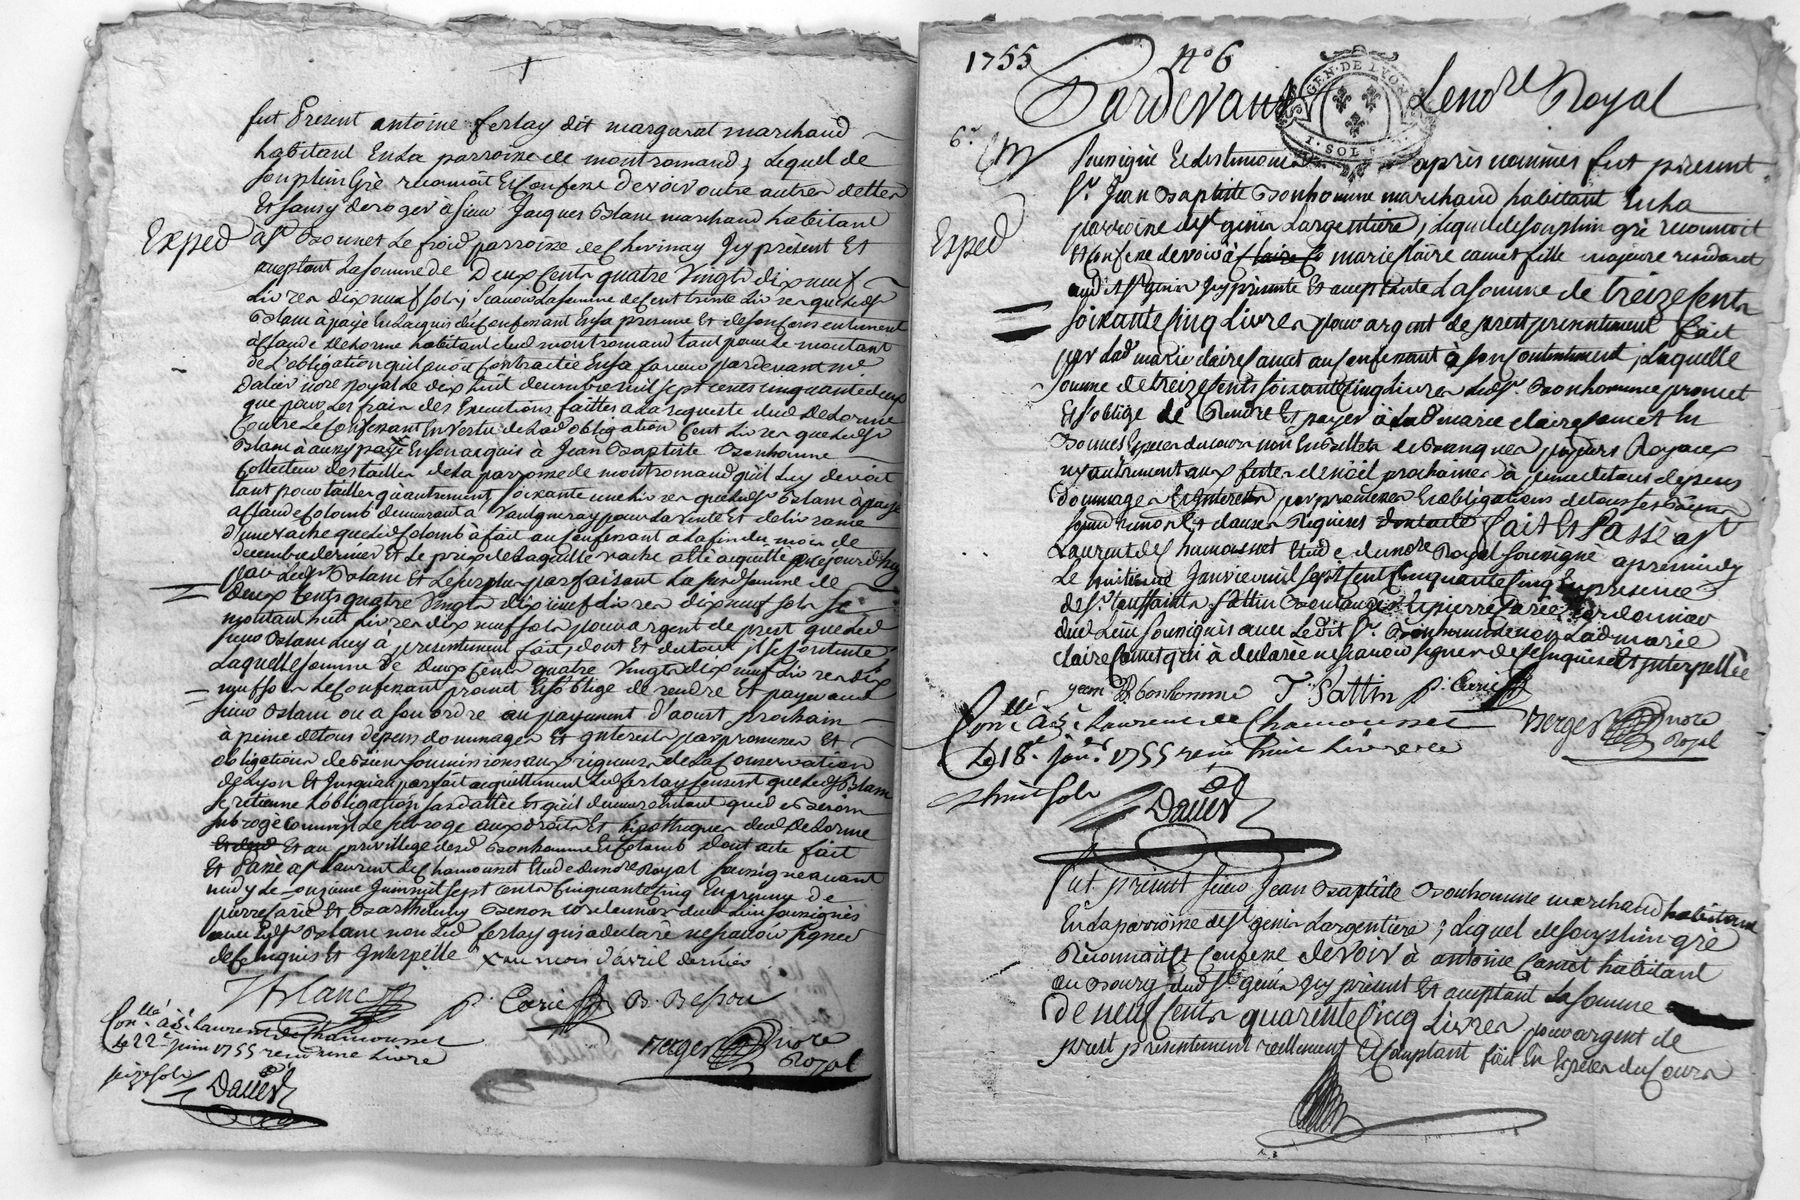 fut Present antoine ferlay dit margarat marchand
habitant En La parroisse de montromand ; Lequel de
son plein Gré reconnoit Et Confesse devoir outre autres dettes
Et sans y deroger à sieur Jacques Blanc marchand habitant
Exped
à st Bonnet Le froid parroisse de Chevinay Jcy present Et
aceptant La somme de Deux Cents quatre Vingts dix neuf
Livres dix neuf sols ; Scavoir La somme de Cent trente Livres que Led sr
Blanc à payé En Lacquis du Confessant En sa presence Et de son Consentement
à Claude Delorme habitant dud montromand tant pour Le montant
de L'obligation qu'il avoit Contractée En sa faveur pardevant me
Dalin nore Royal Le dix huit decembre mil sept cents cinquante deux
que pour Les frais des Executions faittes a La requeste dud Delorme
Contre Le Confessant En vertu de Lad obligation Cent Livres que Led sr
Blanc à aussy payé En son acquis à Jean Baptiste Bonhomme
Collecteur des tailles de La parroisse de montromand qu'il Luy devoit
tant pour tailles qu'autrement, soixante une Livres que Led sr Blanc à payé
a Claude Colomb demeurant a Vaugneray pour La vente Et delivrance
d'une vache que Led Colomb à fait au Confessant a La fin du mois de
decembre dernier Et Le prix de Laquelle vache a été acquitté
par Led sr Blanc Et Le surplus parfaisant La susd somme de
Deux Cents quatre Vingts dix neuf Livres dix neuf sols se
montant huit Livres dix neuf sols pour argent de prest que Led
sieur Blanc Luy à presentement fait, dont Et du tout il se Contente
Laquelle somme de Deux Cents quatre Vingts dix neuf Livres dix
neuf sols Le Confessant promet Et s'oblige de rendre Et payer aud
sieur Blanc ou a son ordre au payement d'aoust prochain
à peine de tous depens dommages Et Interests par promesses Et
obligations de Biens soumissions aux rigueurs de La Conservation
de Lyon Et Jusqu'au parfait acquittement Led ferlay Consent que Led sr Blanc
se retienne Lobligation susdattée Et qu'il demeure
subrogé comme il Le subroge aux droits Et hipotheques dud Delorme
Et au privillege desd Bonhomme Et Colomb dont acte fait
Et Passé a st Laurent de Chamousset Etude du nore Royal soussigné avant
midy Le onzieme Juin mil sept cents Cinquante Cinq En presence de
pierre Carie Et Barthelemy Besson Cordonniers dud Lieu soussignés
avec Led sr Blanc non Led ferlay qui a declaré ne scavoir signer
de Ce Enquis Et Interpellé x au mois d'avril dernier
J Blanc
p. Carie
B. Besson
Con.llé à St Laurent de Chamousset
Le 22e Juin 1755 recu une Livre
seize sols
Dauer
Berger nore
Royal
1755 No 6
GEN. DE LYON
1. SOL
Pardevant Le nore Royal
6e
soussigné Et Les temoins après nommés fut present
Sr Jean Baptiste Bonhomme marchand habitant En La
parroisse de st genis Largentiere, Lequel de son plein gré reconnoit
Exped
Et Confesse devoir à marie Claire Camet fille majeure residant
aud st genis Jcy presente Et aceptante La somme de treize Cents
soixante Cinq Livres pour argent de prest presentement fait
par Lad marie claire Camet au Confessant à son Contentement ; Laquelle
somme de treize Cents soixante Cinq Livres Led sr Bonhomme promet
Et s'oblige de Rendre Et payer à Lad marie claire Camet En
Bonnes Especes du cours non En Billets de Banques papiers Royaux
ny autrement aux fetes de noël prochaines à peine de tous depens
dommages Et Interests par promesses Et obligations de tous ses Biens
Renon Et clauses Requises dont acte fait Et Passé a st
Laurent de Chamousset Etude du nore Royal soussigné apres midy
Le huitieme Janvier mil sept Cent Cinquante Cinq En presence
de sr toussaint Pattin Boulanger Et pierre Carie Cordonnier
dud Lieu soussignés avec Ledit sr Bonhomme non Lad marie
claire Camet qui à declaré ne scavoir signer de Ce Enquise Et Interpellée
jean B bonhomme T. Pattin p. Carie
Con.llé à St Laurent de Chamousset
Le 18e Janer 1755 recu huit Livres
huit sols
Berger nore
Royal
Dauer
fut present sieur Jean Baptiste Bonhomme marchand habitant
En La parroisse de st genis Largentiere ; Lequel de son plein gré
Reconnoit Et Confesse devoir à antoine Camet habitant
au Bourg dud st genis Jcy present Et aceptant La somme
de neuf Cents quarente Cinq Livres pour argent de
prest presentement reellement Et Comptant fait En Especes du Cours